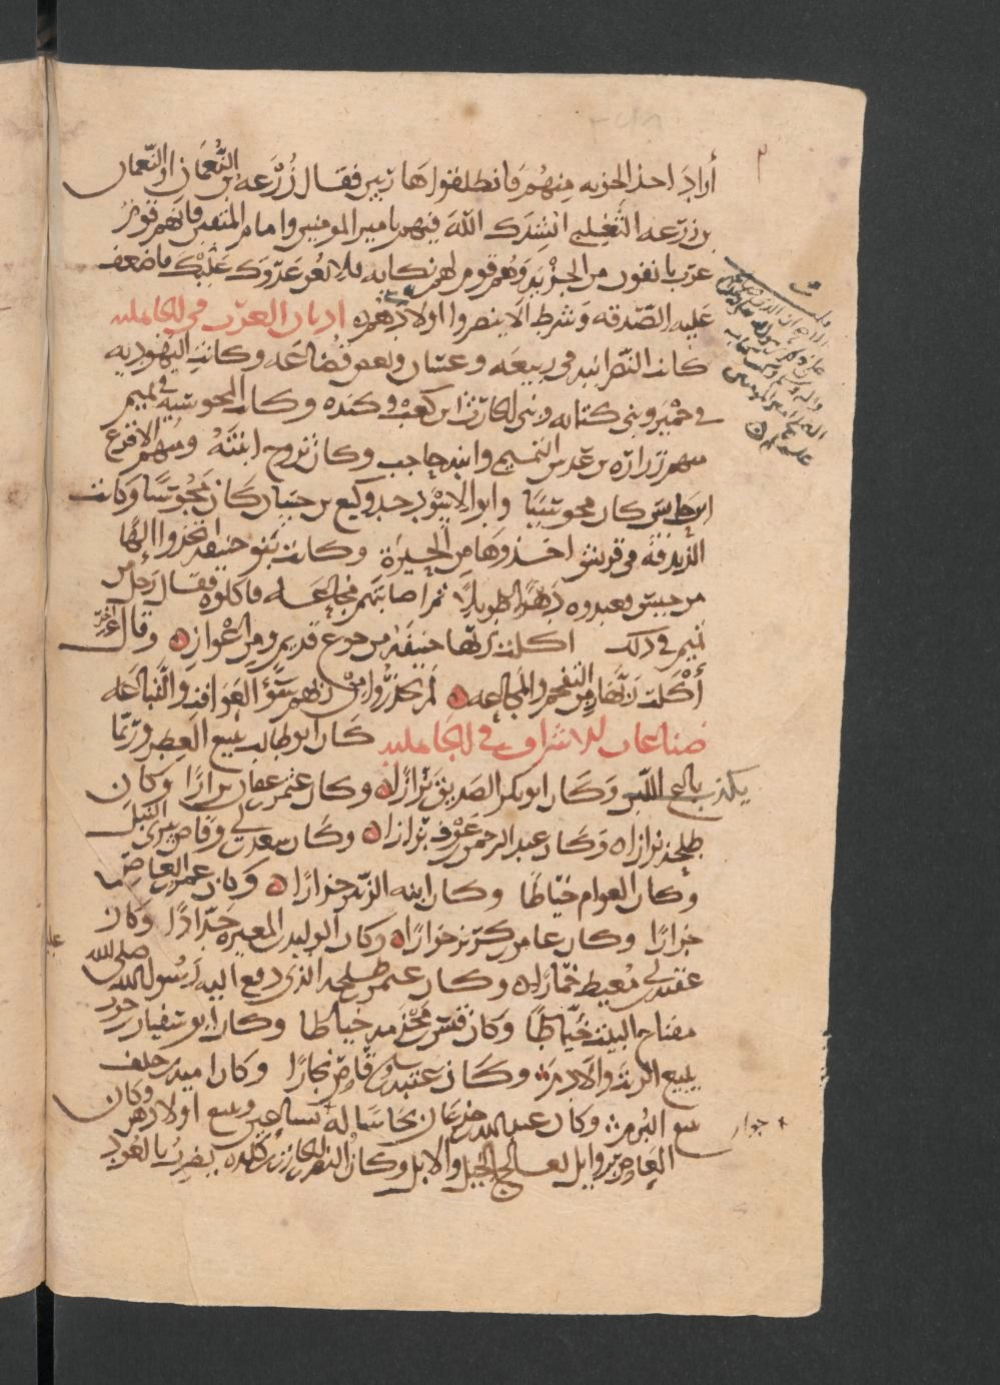 أراد اخذ الجزيه منهم فانطلقوا هاربين فقال زرعه بن النعمان او النعمان
بن زرعه التغلبي انشدك الله فيهم يا امير المومنين فانهم قوم
عرب يانفون من الجزيه وهم قوم لهم نكايه فلا تعن عدوك عليك فاضعف
عليه الصدقه وشرط الا ينصروا اولادهم اديان العرب في الجاهليه
كانت النصرانيه في ربيعه وغسان وبعض قضاعه وكانت اليهوديه
في حمير وبني كنانه وبني الحارث ابن كعب وكنده وكان المجوسيه في تميم
منهم زراره بن عدس التميمي وابنه حاجب وكان تزوج ابنته ومنهم الاقرع
ابن حابس كان مجوسيا وابو الاسود جد وكيع بن حسان كان مجوسيا وكانت
الزندقة في قريش اخذوها من الحيرة وكانت بنو حنيفه اتخذوا الها
من حيس فعبدوه دهرا طويلا ثم اصابتهم مجاعه فاكلوه فقال رجل من
تميم في ذلك اكلت ربها حنيفه من جوع قديم ومن اعواز وقال اخر
أكلت ربها من التقحم والمجاعه لم يحذروا من ربهم سؤ العواقب والتباعه
صناعات الاشراف في الجاهليه كان ابو طالب يبيع العطر وربما
باع اللبن وكان ابو بكر الصديق بزازا وكان عثمن بن عفان بزازا وكان
طلحه بزازا وكان عبد الرحمن بن عوف بزازا وكان سعد بن ابي وقاص يبري النبل
وكان العوام خياطا وكان ابنه الزبير جزارا وكان عمرو بن العاص
جزارا وكان عامر بن كريز جزارا وكان الوليد بن المغيره حدادا وكان
عقبه بن ابي معيط خمارا وكان عثمن بن طلحه الذي دفع اليه رسول الله صلى الله
مفتاح البيت خياطا وكان قيس بن مخرمه خياطا وكان ابو سفيان بن حرب
يبيع الزيت والادم وكان عتبه بن ابي وقاص نجارا وكان اميه بن خلف
يبيع البرم وكان عبد الله بن جدعان نخاسا له يساعين ويبيع اولادهن وكان
العاص بن وايل يعالج الخيل والابل وكان النضر بن الحارث بن كلده يضرب بالعود